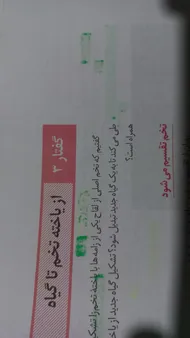 گفتار ۳
از یاخته تخم تا گیاه
گفتیم که تخم اصلی از لقاح یکی از زامه‌ها با یاخته تخم‌زا تشکیل
طی می کند تا به یک گیاه جدید تبدیل شود؟ تشکیل گیاه جدید از یاخ
همراه است؟
تخم تقسیم می شود